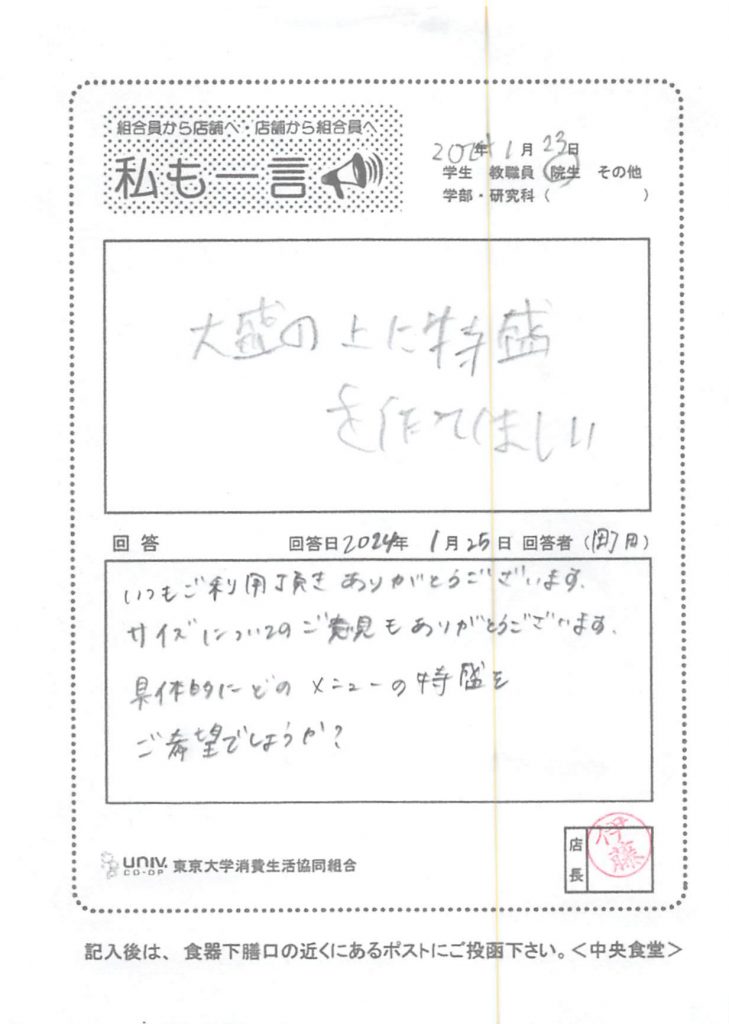 組合員から店舗へ・店舗から組合員へ
私も一言
2024年1月23日
学生 教職員 院生 その他
学部・研究科( )
大盛の上に特盛
を作てほしい
回答 回答日2024年 1月25日 回答者(町田)
いつもご利用頂きありがとうございます。
サイズについてのご意見もありがとうございます。
具体的にどのメニューの特盛を
ご希望でしょうか?
UNIV. CO-OP 東京大学消費生活協同組合
店長
伊藤
記入後は、食器下膳口の近くにあるポストにご投函下さい。<中央食堂>